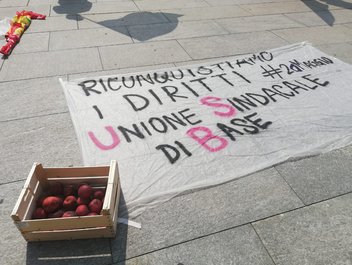 RICONQUISTIAMO
I DIRITTI #2GIUGNO
UNIONE SINDACALE
DI BASE